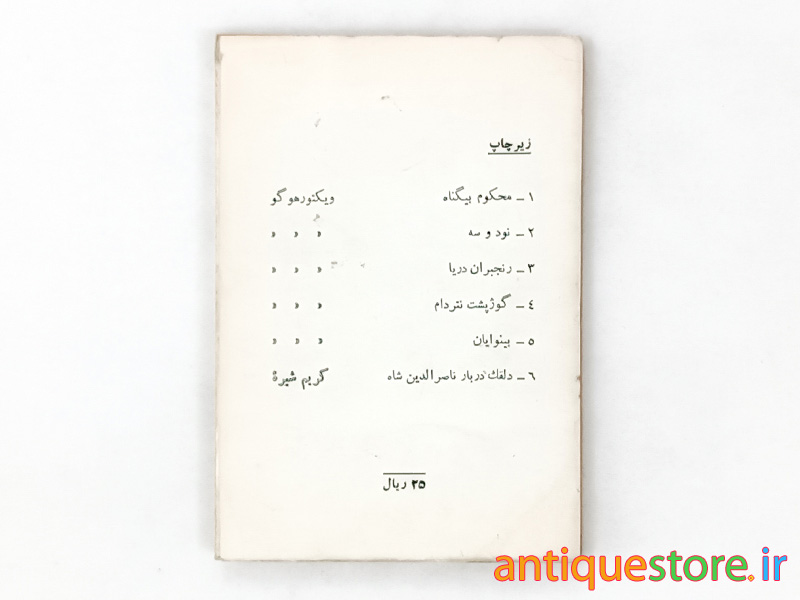 زیر چاپ
۱ـ محکوم بیگناه ویکتورهوگو
۲ـ نود و سه » » »
۳ـ رنجبران دریا » » »
۴ـ گوژپشت نتردام » » »
۵ـ بینوایان » » »
۶ـ دلقك دربار ناصرالدین شاه کریم شیرهٔ
۲۵ ریال
antiquestore.ir